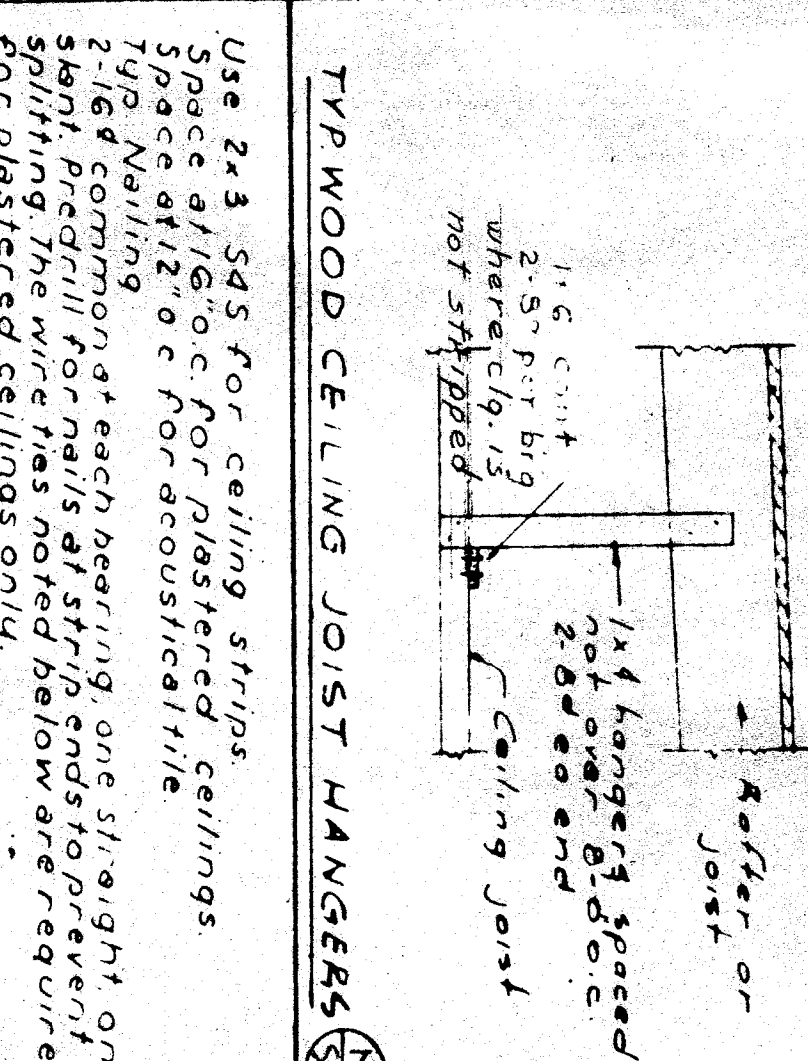 Rafter or
joist
1x4 hangers spaced
not over 8'-0 o.c.
2-8d ea end
Ceiling joist
1x6
2-8" per
where clg. is
not stripped
TYP. WOOD CEILING JOIST HANGERS
Use 2x3 S4S for ceiling strips.
Space at 16" o.c. for plastered ceilings.
Space at 12" o.c. for acoustical tile.
Typ. Nailing
2-16d common at each bearing, one straight, on
slant. Predrill for nails at strip ends to prevent
splitting. The wire ties noted below are require
for plastered ceilings only.